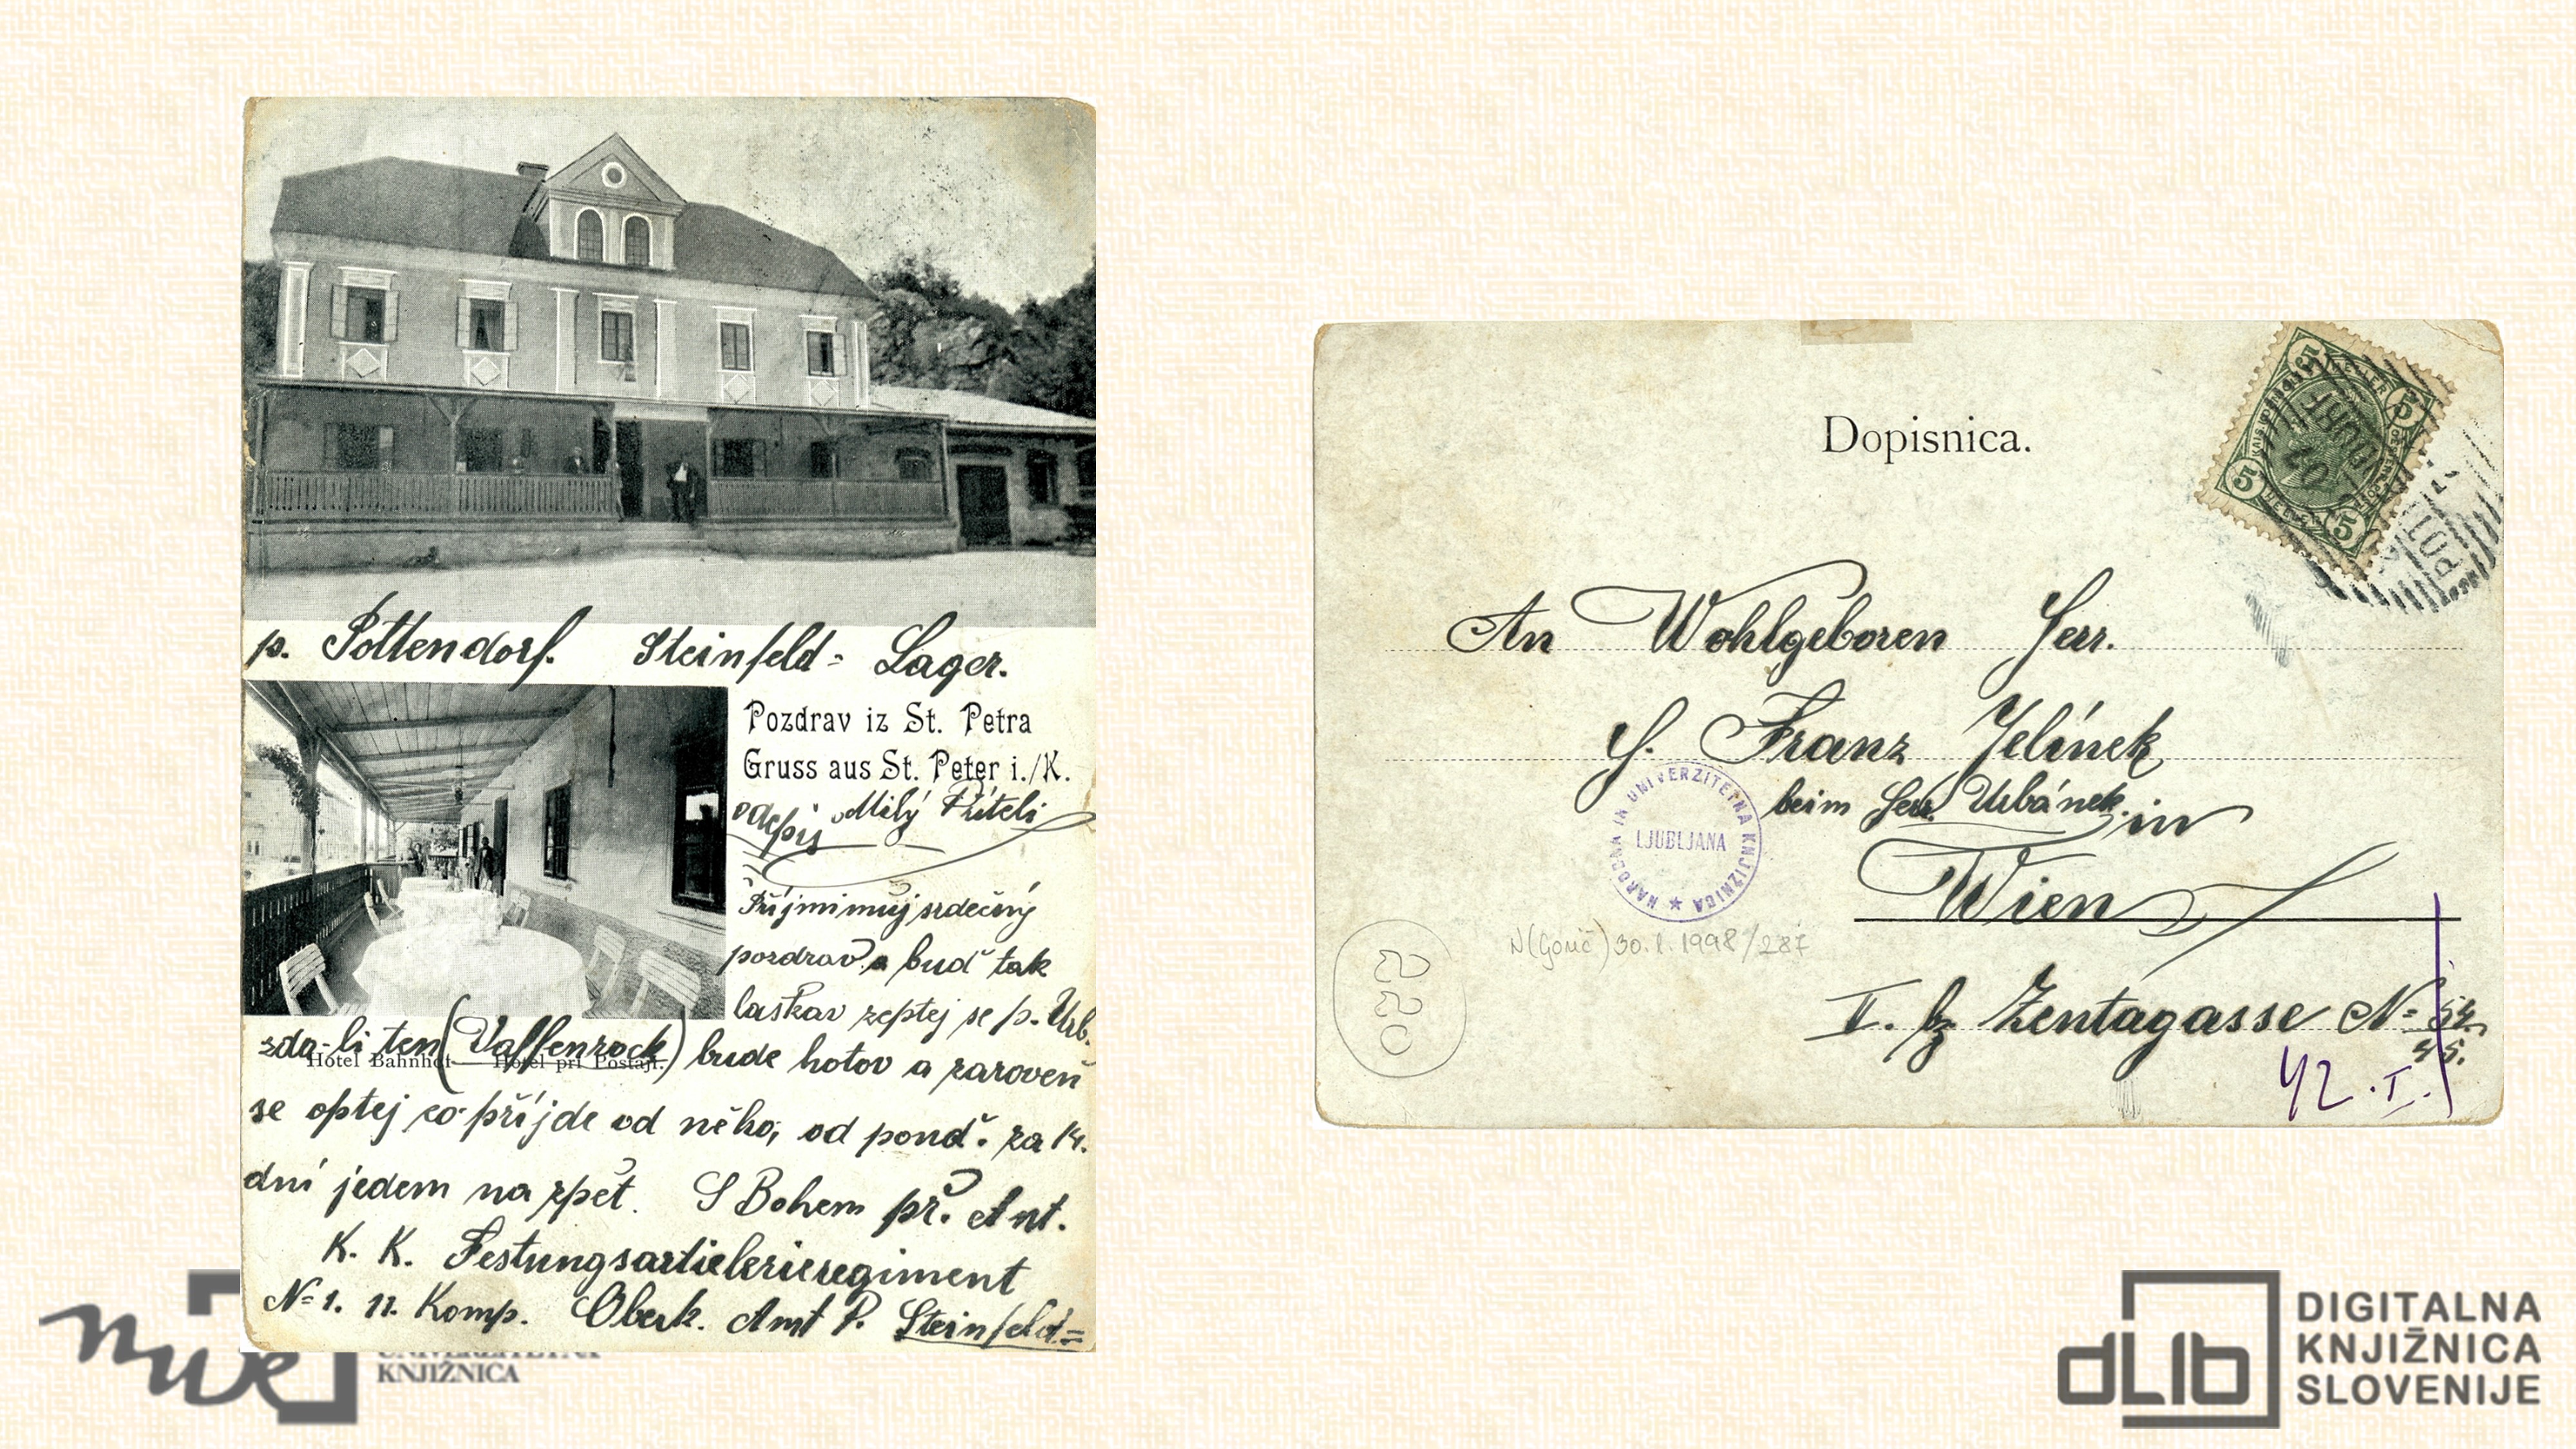 p. Pottendorf. Steinfeld= Lager.
Pozdrav iz St. Petra
Gruss aus St. Peter i./K.
odepiš Milý Příteli
Příjmi můj srdečný
pozdrav a buď tak
laskav zeptej se p. Urb.
zda-li ten (Vaffenrock) bude hotov a zaroveň
Hôtel Bahnhof Hôtel pri Postaji.
se optej co příjde od něho, od pond. za 14.
dní jedem na zpět. S Bohem př. Ant.
K. K. Festungsartielerieregiment
No 1. 11. Komp. Oberk. Amt P. Steinfeld=
KNJIŽNICA
Dopisnica.
5 5 5 5
An Wohlgeboren Herr.
H. Franz Jelínek
beim Herr. Urbánek. in
Wien
NARODNA IN UNIVERZITETNA KNJIŽNICA
LJUBLJANA
N(Gorič) 30.1.1998/287
220
V. bz Zentagasse No
42. I.
dLib
DIGITALNA
KNJIŽNICA
SLOVENIJE